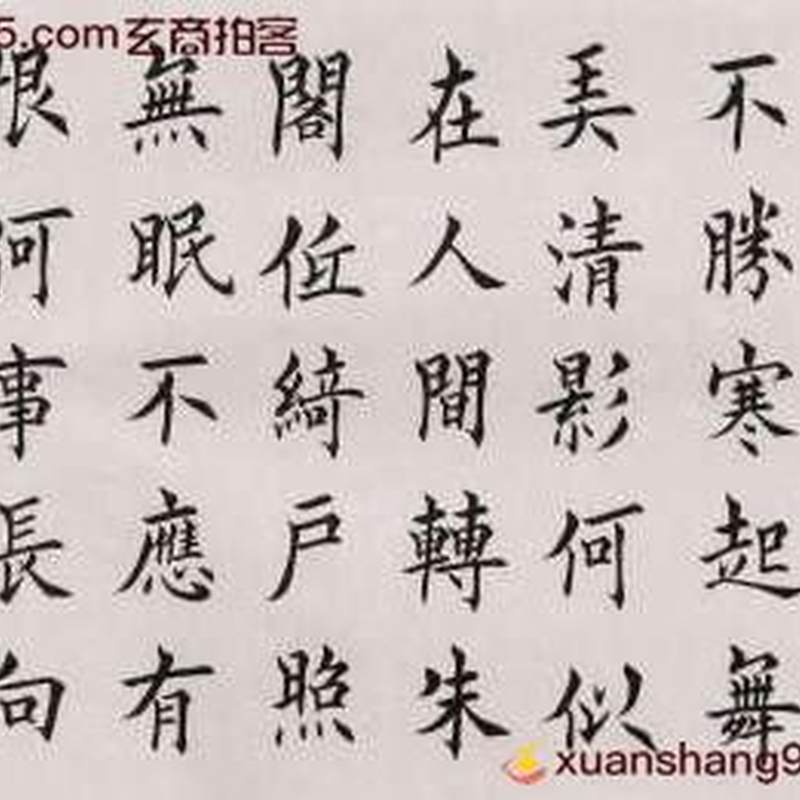 5.com玄商拍客
不勝寒起舞
弄清影何似
在人間轉朱
閣低綺戶照
無眠不應有
恨何事長向
xuanshang9